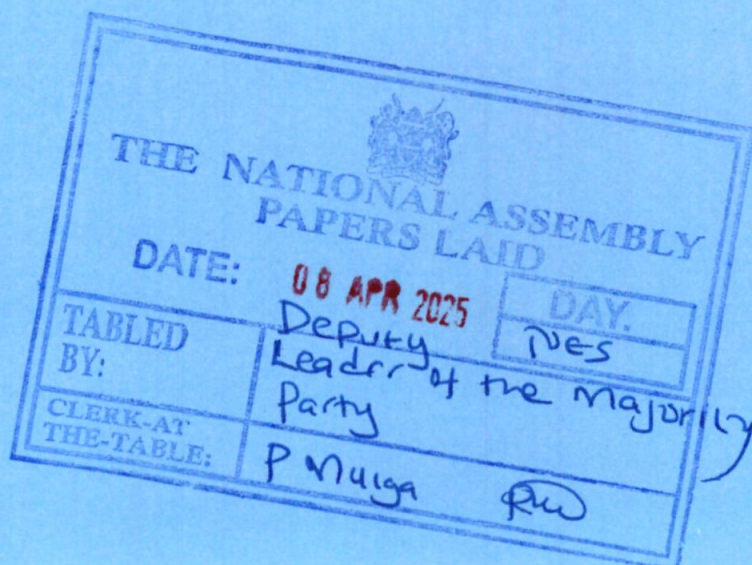 THE NATIONAL ASSEMBLY
PAPERS LAID
DATE: 08 APR 2025
DAY.
TUES
TABLED
BY:
Deputy
Leader of the Majority
Party
CLERK-AT
THE-TABLE:
P